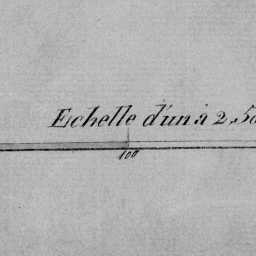 Echelle d'un à 2.50
100